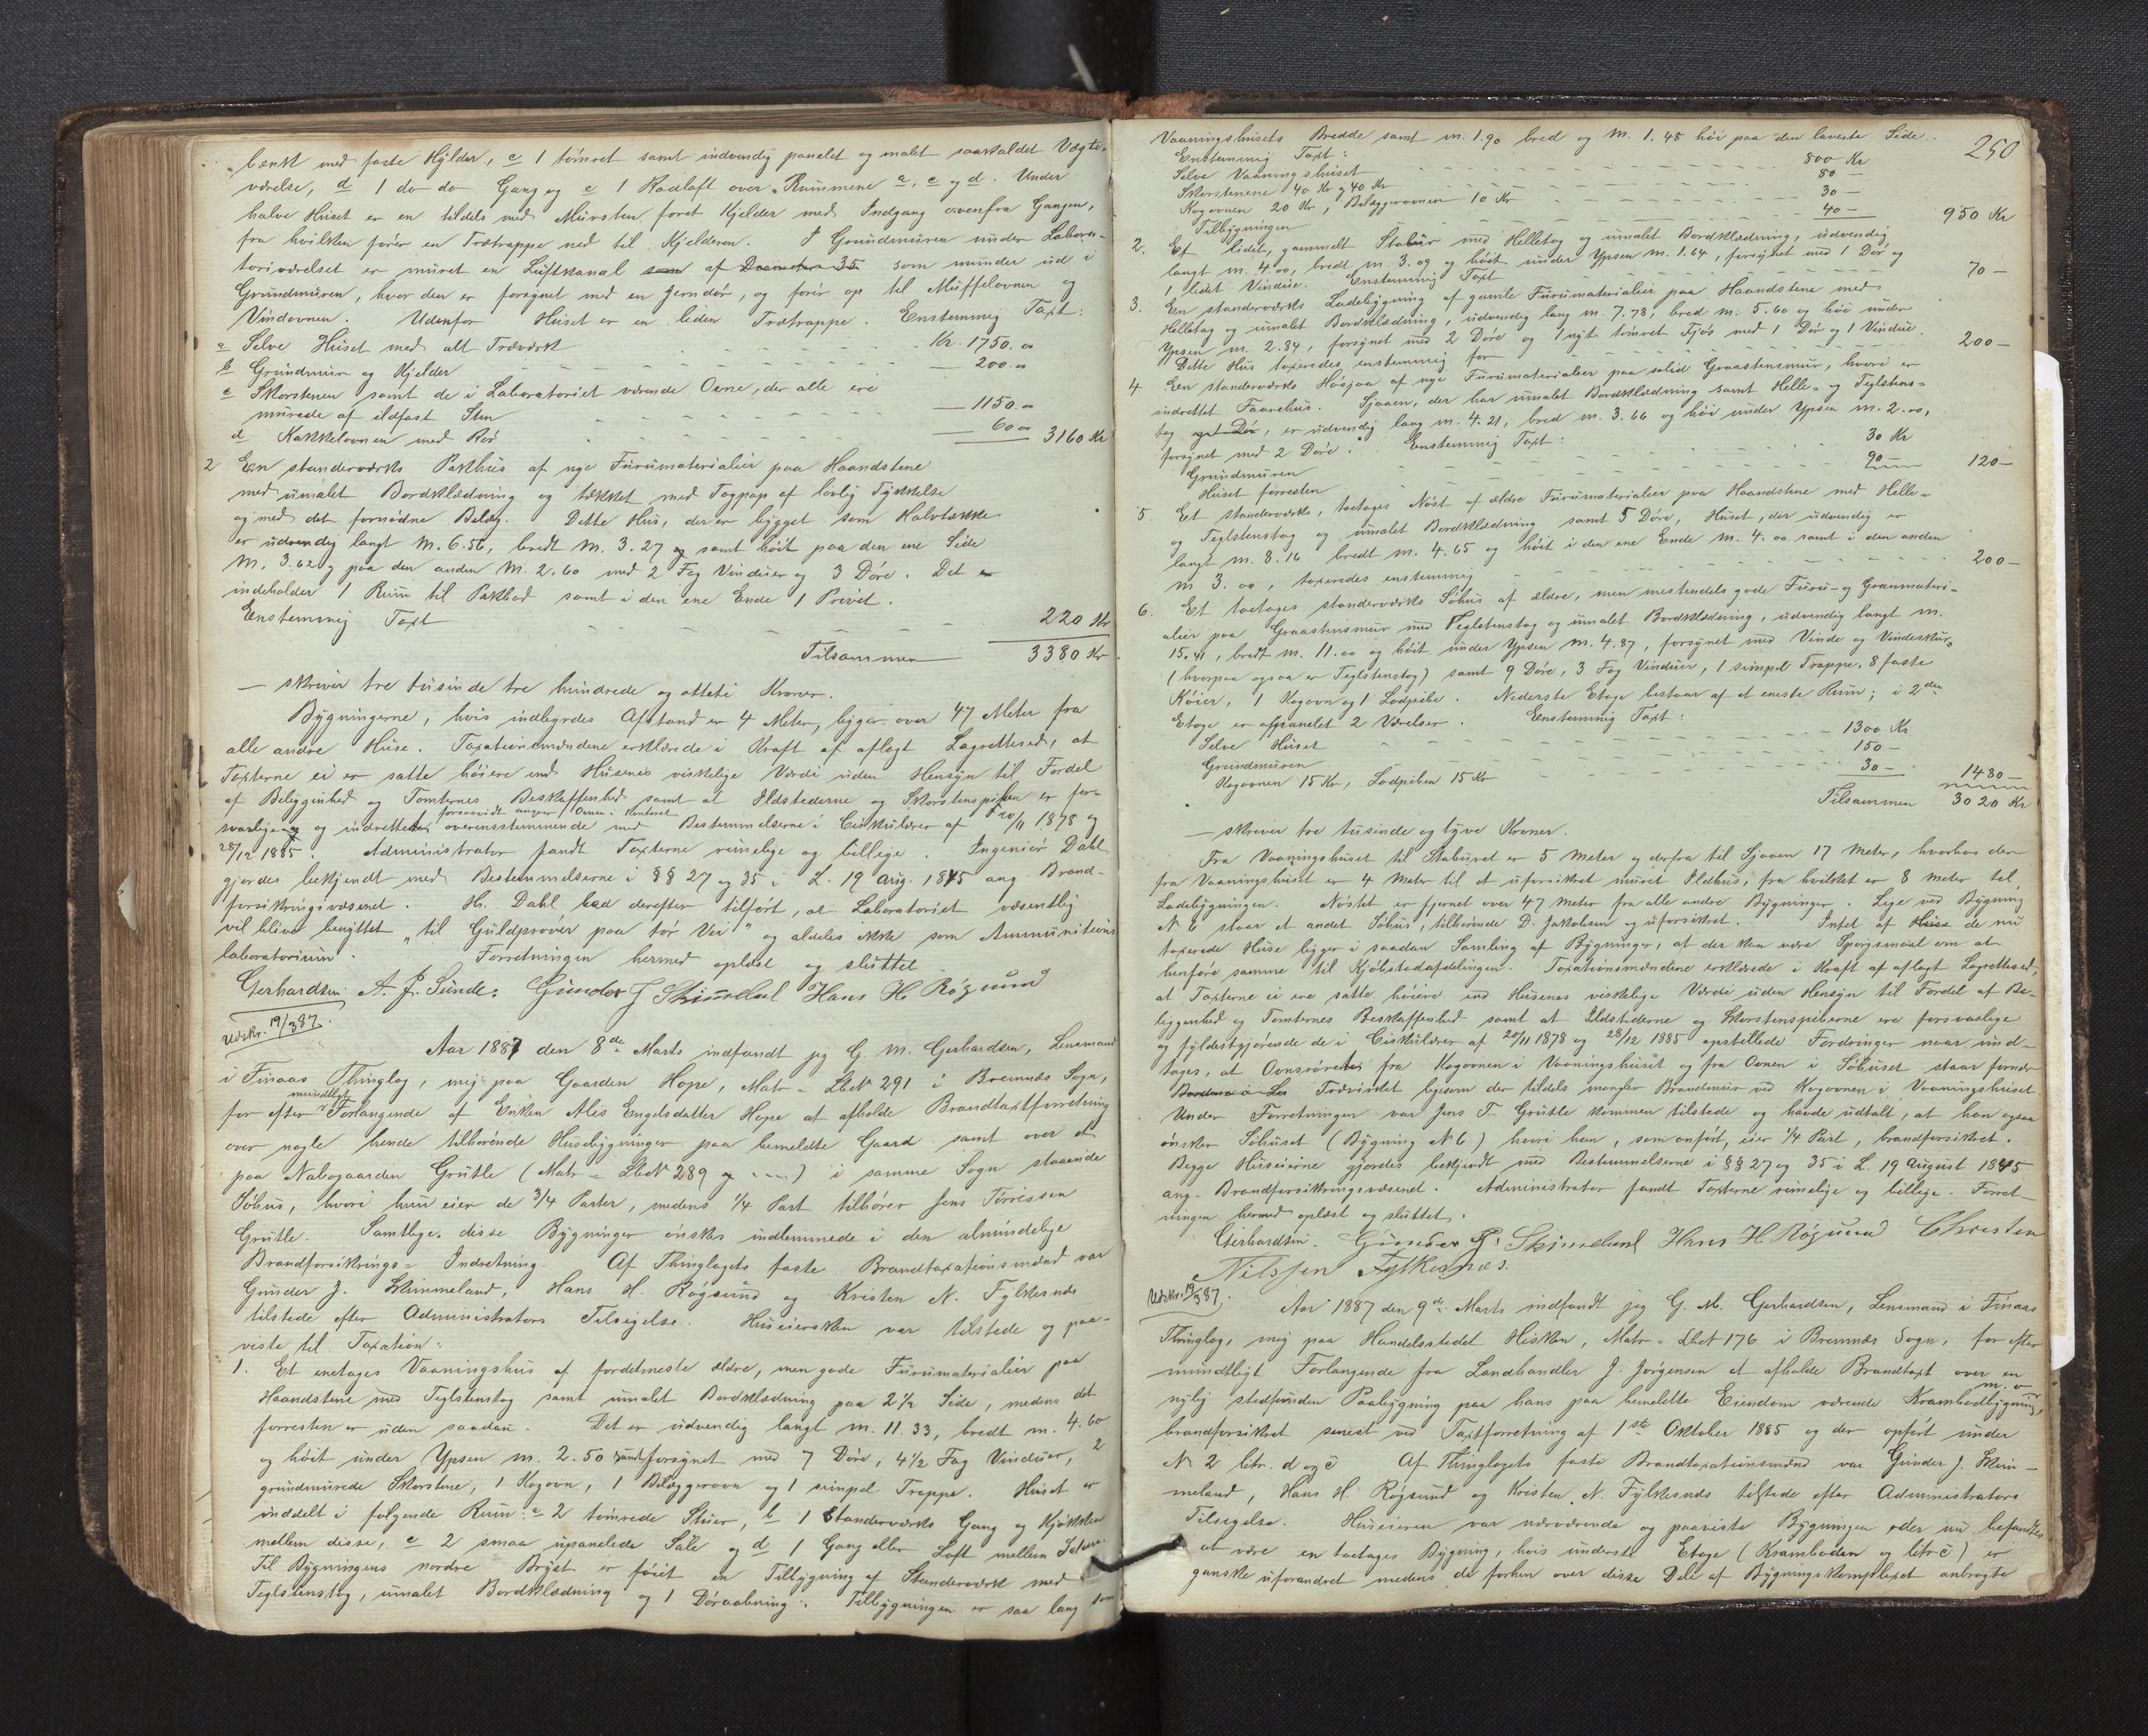 bænk med faste Hylder, c 1 tømret samt indvendig panelet og malet saakaldet Vægte-
værelse, d 1 do do Gang og e 1 Rodloft over Rummene a, c og d. Under
halve Huset er en tildels med Mursten foret Kjelder med Indgang ovenfra Gangen,
fra hvilken fører en Trætrappe ned til Kjelderen. I Grundmuren under Labora-
toriværelset er muret en Luftkanal som af Diameter 35 som munder ud i
Grundmuren, hvor den er forsynet med en Jerndør, og fører op til Muffelovnen og
Vindovnen. Udenfor Huset er en liden Trætrappe. Enstemmig Taxt:
a Selve Huset med alt Træværk - - - - Kr. 1750.00
b Grundmur og Kjelder - - - - 200.00
c Skorstenen samt de i Laboratoriet værende Ovne, der alle ere
murede af ildfast Sten - - - - 1150.00
d Kakkelovnen med Rør - - - - 60.00 3160 Kr
2 En standerværks Pakhus af nye Furumaterialier paa Haandstene
med umalet Bordklædning og tækket med Tagpap af lovlig Tykkelse
og med det fornødne Belæg. Dette Hus, der er bygget som Halvtække
er udvendig langt M. 6.56, bredt M. 3.27 og samt høit paa den ene Side
M. 3.62 og paa den anden M. 2.60 med 2 Fag Vinduer og 3 Døre. Det er
indeholder 1 Rum til Pakbod samt i den ene Ende 1 Privét.
Enstemmig Taxt - - - - 220 Kr
Tilsammen 3380 Kr
— skriver tre tusinde tre hundrede og otteti Kroner.
Bygningerne, hvis indbyrdes Afstand er 4 Meter, ligger over 47 Meter fra
alle andre Huse. Taxationsmændene erklærede i Kraft af aflagt Lagrettesed, at
Taxterne ei er satte høiere end Husenes virkelige Værdi uden Hensyn til Fordel
af Beliggenhed og Tomternes Beskaffenhed samt at Ildstederne og Skorstenspiben er for-
forsaavidt angaar Ovnen i Kontoret
svarlige og indrettede overensstemmende med Bestemmelserne i Cirkulærer af 20/11 1878 og
28/12 1885. Administrator fandt Taxterne rimelige og billige. Ingeniør Dahl
gjordes bekjendt med Bestemmelserne i §§ 27 og 35 i L. 19 Aug. 1845 ang. Brand-
forsikringsvæsenet. Hr. Dahl bad derefter tilført, at Laboratoriet væsentlig
vil blive benyttet „til Guldprøver paa tør Vei" og aldeles ikke som Ammunitions
laboratorium. Forretningen hermed oplæst og sluttet
Gerhardsen. A. J. Sunde. Gunder J Skimeland Hans H. Røgsund
Udskr. 19/3 87.
Aar 1887 den 8de Marts indfandt jeg G. M. Gerhardsen, Lensmand
i Finaas Thinglag, mig paa Gaarden Hope, Matr-Lbn 291 i Bremnæs Sogn,
mundtligt
for efter Forlangende af Enken Alis Engelsdatter Hope at afholde Brandtaxtforretning
over nogle hende tilhørende Husebygninger paa bemeldte Gaard samt over et
paa Nabogaarden Grutle (Matr-Lbn 289 og ---) i samme Sogn staaende
Søhus, hvori hun eier de 3/4 Parter, medens 1/4 Part tilhører Jens Tørrissen
Grutle. Samtlige disse Bygninger ønskes indlemmede i den almindelige
Brandforsikrings-Indretning. Af Thinglagets faste Brandtaxationsmænd var
Gunder J. Skimmeland, Hans H. Røgsund og Kristen N. Fylkesnæs
tilstede efter Administrators Tilsigelse. Huseiersken var tilstede og paa-
viste til Taxation:
1. Et enetages Vaaningshus af fordetmeste ældre, men gode Furumaterialier paa
Haandstene med Teglstenstag samt umalet Bordklædning paa 2 1/2 Side, medens det
forresten er uden saadan. Det er udvendig langt m. 11.33, bredt m. 4.60
og høit under Ypsen m. 2.50 samt forsynet med 7 Døre, 4 1/2 Fag Vinduer, 2
grundmurede Skorstene, 1 Kogovn, 1 Bilæggerovn og 1 simpel Trappe. Huset er
inddelt i følgende Rum: a 2 tømrede Stuer, b 1 Standerværks Gang og Kjøkken
mellem disse, c 2 smaa upanelede Sale og d 1 Gang eller Loft mellem Salene
Til Bygningens nordre Bryst er føiet en Tilbygning af Standerværk med
Teglstenstag, umalet Bordklædning og 1 Døraabning. Tilbygningen er saa lang som
250
Vaaningshusets Bredde samt m. 1.90 bred og M. 1.48 høi paa den laveste Side.
Enstemmig Taxt:
Selve Vaaningshuset - - - - 800 Kr
Skorstenene 40 Kr og 40 Kr - - - - 80 —
Kogovnen 20 Kr, Bilæggerovnen 10 Kr - - - - 30 —
Tilbygningen - - - - 40 — 950 Kr
2. Et lidet, gammelt Stabur med Helletag og umalet Bordklædning, udvendig
langt m. 4.00, bredt m. 3.09 og høit under Ypsen m. 1.64, forsynet med 1 Dør og
1 lidet Vindue. Enstemmig Taxt 70 —
3. En standerværks Ladebygning af gamle Furumaterialier paa Haandstene med
Helletag og umalet Bordklædning, udvendig lang m. 7.78, bred m. 5.60 og høi under
Ypsen m. 2.84, forsynet med 2 Døre og 1 nyt tømret Fjøs med 1 Dør og 1 Vindue.
Dette Hus taxeredes enstemmig for - - - - 200 —
4 En standerværks Høsjaa af nye Furumaterialier paa solid Graastensmur, hvori er
indrettet Faarehus. Sjaaen, der har umalet Bordklædning samt Helle- og Teglstens-
tag og 1 Dør, er udvendig lang m. 4.21, bred m. 3.66 og høi under Ypsen m. 2.00,
forsynet med 2 Døre. Enstemmig Taxt:
Grundmuren - - - - 30 Kr
Huset forresten - - - - 90 — 120 —
5 Et standerværks, toetages Nøst af ældre Furumaterialier paa Haandstene med Helle-
og Teglstenstag og umalet Bordklædning samt 5 Døre, Huset, der udvendig er
langt m. 8.16 bredt m. 4.65 og høit i den ene Ende m. 4.00 samt i den anden
m 3.00, taxeredes enstemmig - - - - 200 —
6. Et toetages standerværks Søhus af ældre, men mestendels gode Furu- og Granmateri-
alier paa Graastensmur med Teglstenstag og umalet Bordklædning, udvendig langt m.
15.41, bredt m. 11.00 og høit under Ypsen m. 4.87, forsynet med Vinde og Vindeskur
(hvorpaa ogsaa er Teglstenstag) samt 9 Døre, 3 Fag Vinduer, 1 simpel Trappe, 8 faste
Køier, 1 Kogovn og 1 Lodpibe. Nederste Etage bestaar af et eneste Rum; i 2den
Etage er afpanelet 2 Værelser. Enstemmig Taxt:
Selve Huset - - - - 1300 Kr
Grundmuren - - - - 150 —
Kogovnen 15 Kr, Lodpiben 15 Kr - - - - 30 — 1480 —
Tilsammen 3020 Kr
— skriver tre tusinde og tyve Kroner.
Fra Vaaningshuset til Staburet er 5 Meter og derfra til Sjaaen 17 Meter, hvorhos der
fra Vaaningshuset er 4 Meter til et uforsikret muret Ildhus, fra hvilket er 8 Meter til
Ladebygningen. Nøstet er fjernet over 47 Meter fra alle andre Bygninger. Lige ved Bygning
N 6 staar et andet Søhus, tilhørende D. Jakobsen og uforsikret. Intet af Huse de nu
taxerede Huse ligger i saadan Samling af Bygninger, at der kan være Spørgsmaal om at
henføre samme til Kjøbstadafdelingen. Taxationsmændene erklærede i Kraft af aflagt Lagrettesed,
at Taxterne ei ere satte høiere end Husenes virkelige Værdi uden Hensyn til Fordel af Be-
liggenhed og Tomternes Beskaffenhed samt at Ildstederne og Skorstenspiberne ere forsvarlige
og fyldestgjørende de i Cirkulærer af 20/11 1878 og 28/12 1885 opstillede Fordringer naar und-
tages, at Ovnsrørene fra Kogovnen i Vaaningshuset og fra Ovnen i Søhuset staar for nær
Træværket ligesom der tildels mangler Brandmur ved Kogovnen i Vaaningshuset
Under Forretningen var Jens T. Grutle kommen tilstede og havde udtalt, at han ogsaa
ønsker Søhuset (Bygning N 6) hvori han, som anført, eier 1/4 Part, brandforsikret.
Begge Huseierne gjordes bekjendt med Bestemmelserne i §§ 27 og 35 i L. 19 August 1845
ang. Brandforsikringsvæsenet. Administrator fandt Taxterne rimelige og billige. Forret-
ningen hermed oplæst og sluttet.
Gerhardsen. Gunder J. Skimeland Hans H. Røgsund Christen
Nilssen Fylkesnæs.
Udskr. 19/3 87.
Aar 1887 den 9de Marts indfandt jeg G. M. Gerhardsen, Lensmand i Finaas
Thinglag, mig paa Handelsstedet Hisken, Matr-Lbn 176 i Bremnæs Sogn, for efter
mundtligt Forlangende fra Landhandler J. Jørgensen at afholde Brandtaxt over en
m. v
nylig stedfunden Paabygning paa hans paa bemeldte Eiendom værende Krambodbygning,
brandforsikret senest ved Taxtforretning af 1ste Oktober 1885 og der opført under
N 2 litr. d og e Af Thinglagets faste Brandtaxationsmænd var Gunder J. Skim-
meland, Hans H. Røgsund og Kristen N. Fylkesnæs tilstede efter Administrators
Tilsigelse. Huseieren var nærværende og paaviste Bygningen, der nu befandtes
at være en toetages Bygning, hvis underste Etage (Kramboden og litr e) er
ganske uforandret medens de forhen over disse Dele af Bygningskomplexet anbragte